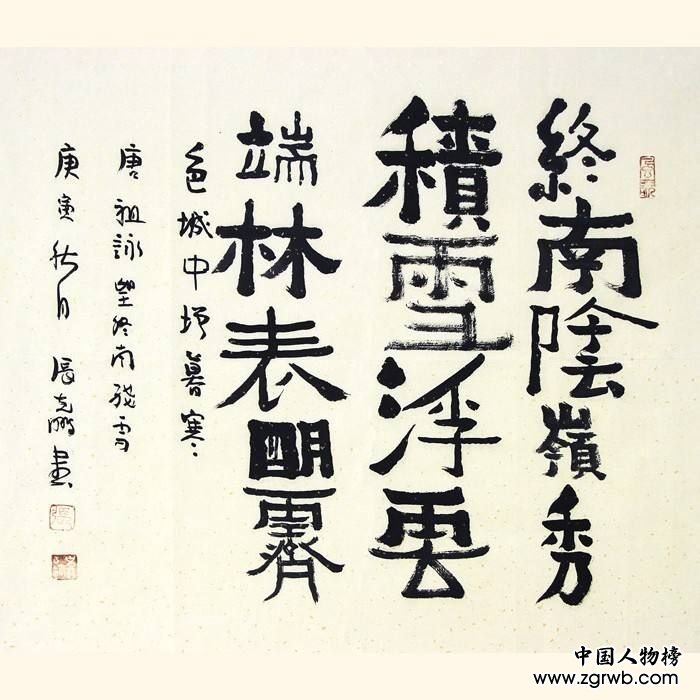 終南陰嶺秀
積雪浮雲
端林表朙霽
色城中增暮寒
唐祖詠望終南殘雪
庚寅秋月張克鵬書
張
中国人物榜
www.zgrwb.com